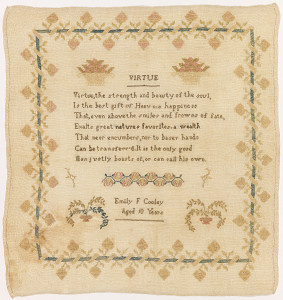 VIRTUE
Virtue, the strength and beauty of the soul,
Is the best gift of Heaven: a happiness
That, even above the smiles and frowns of fate,
Exalts great nature's favorites: a wealth
That never encumbers, nor to baser hands
Can be transferred. It is the only good
Man justly boasts of, or can call his own.
Emily F Cooley
Aged 10 Years